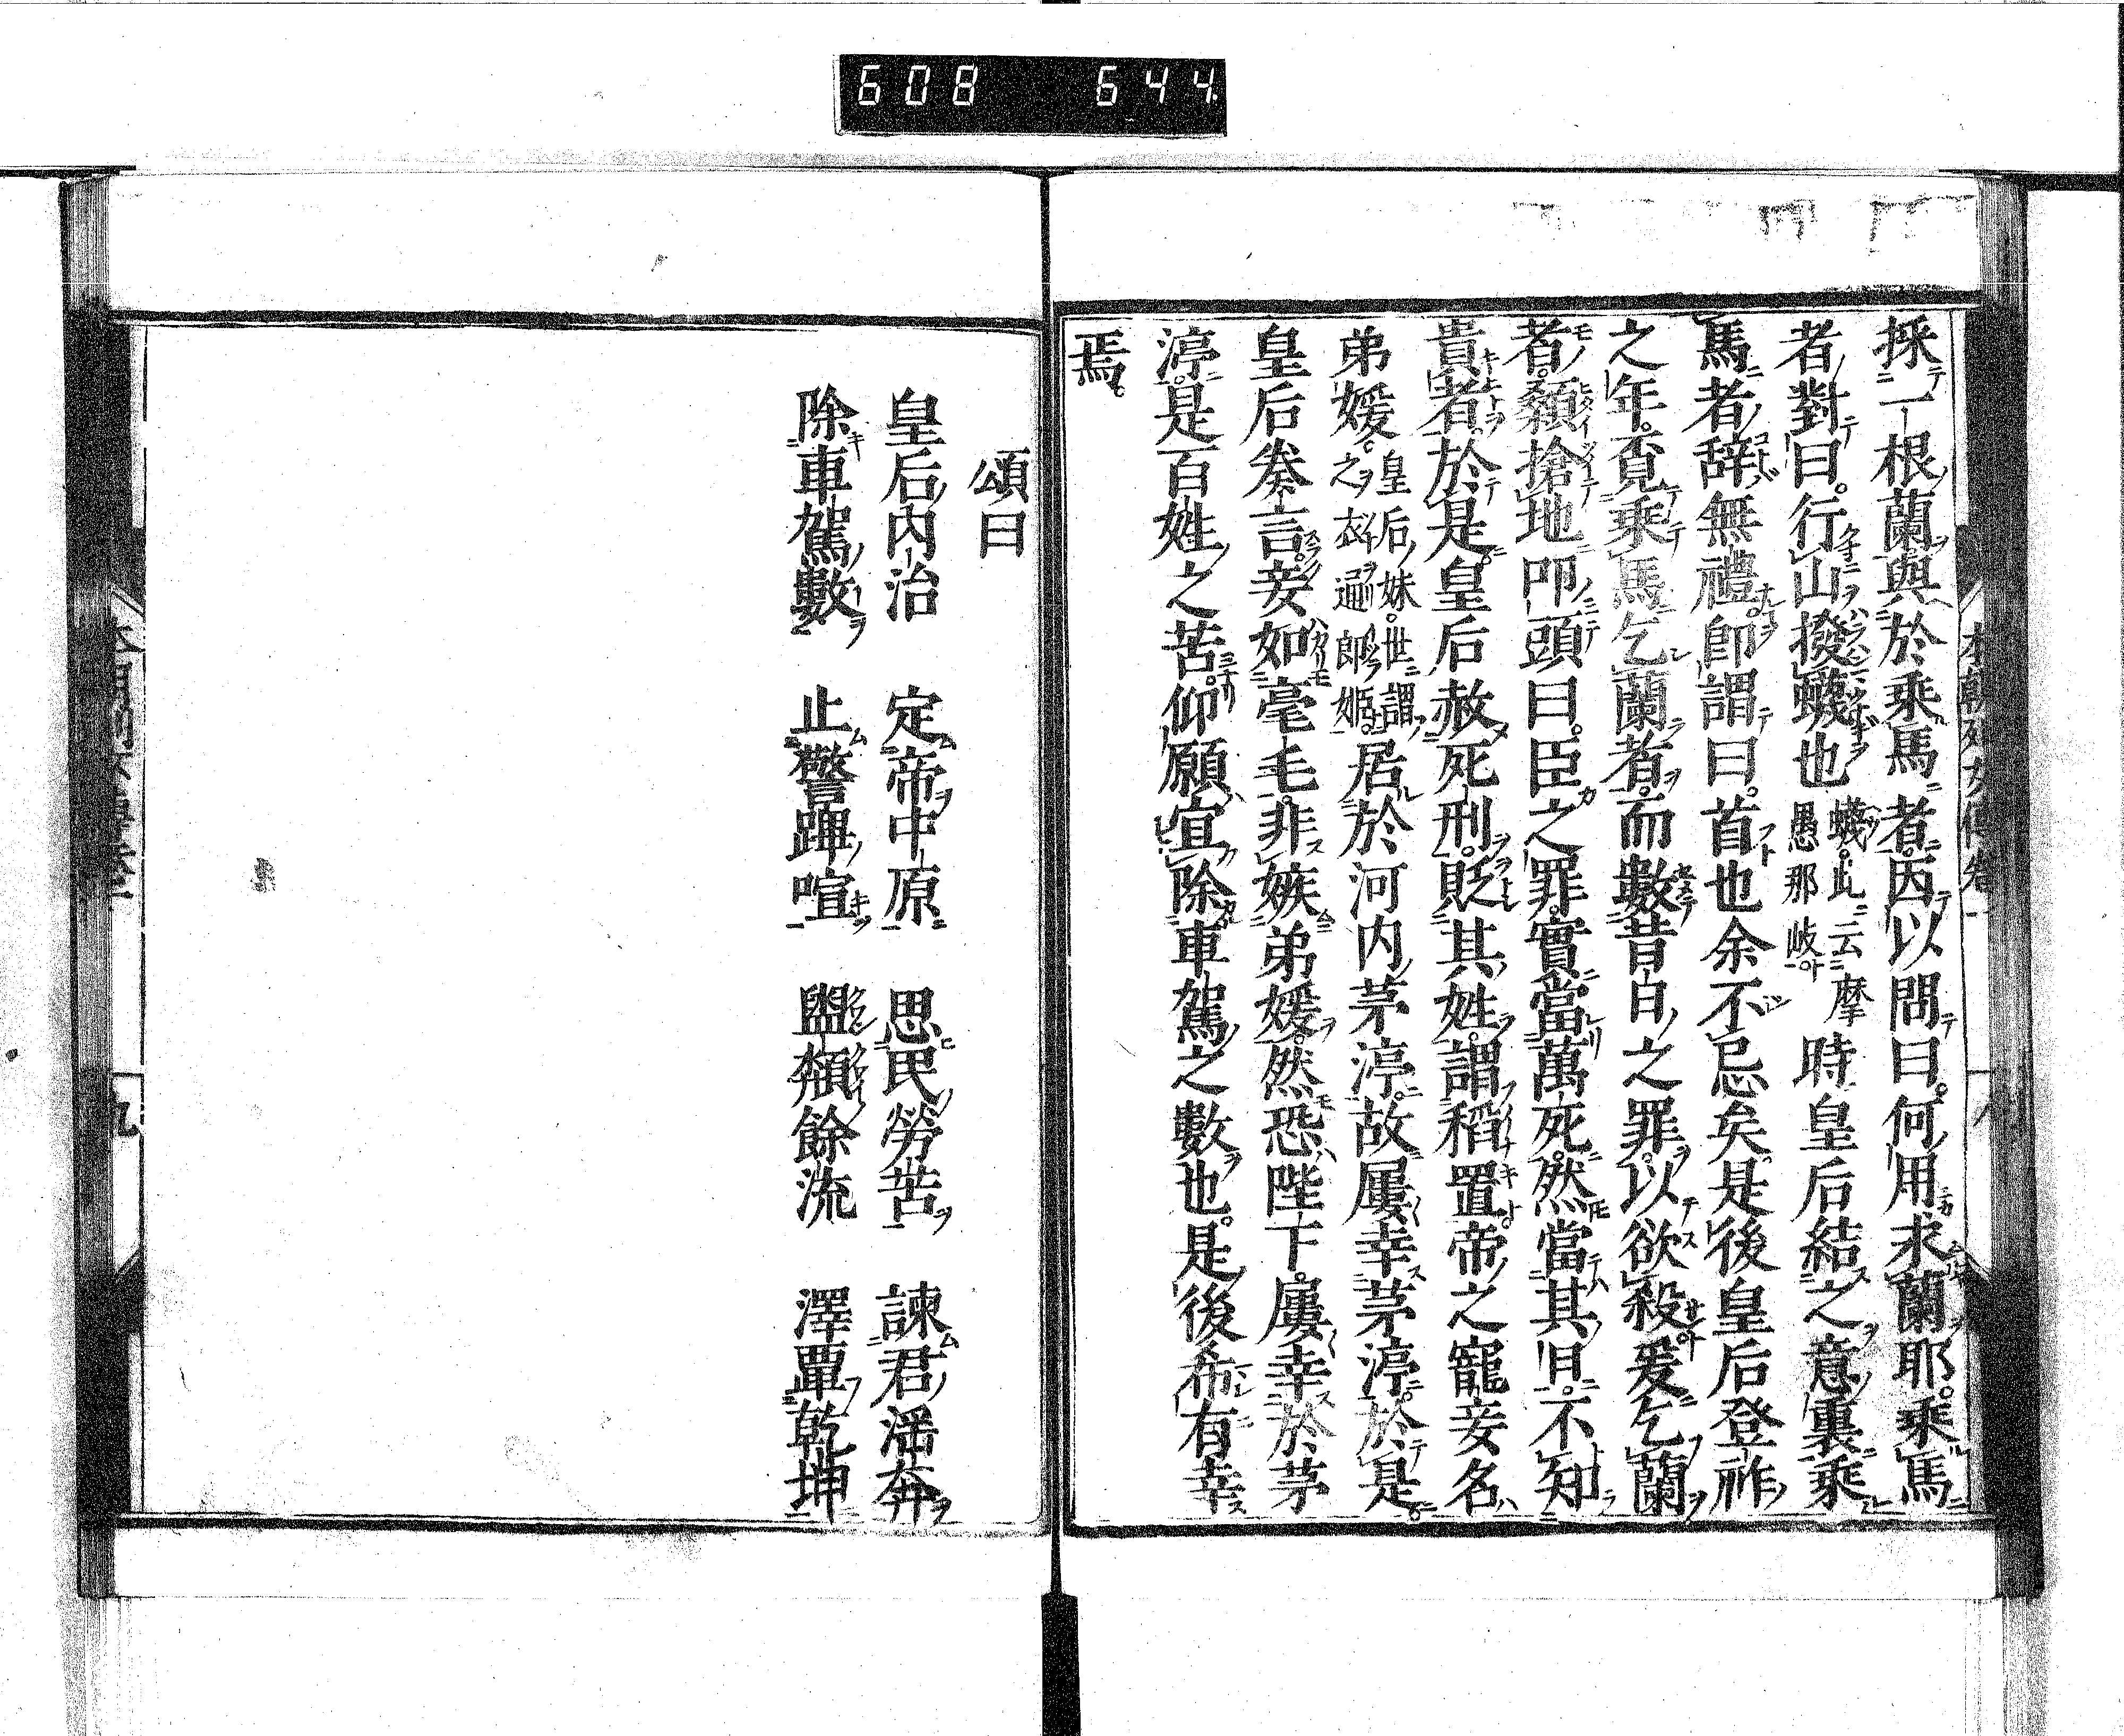 608 644
採一根蘭與於乘馬者因以問曰何用求蘭耶乘馬
者對曰行山撥蠛也
蠛此云摩
愚那岐
時皇后結之意裏乘
馬者辞無禮即謂曰首也余不忌矣是後皇后登祚
之年覓乘馬乞蘭者而數昔日之罪以欲殺爰乞蘭
者顙搶地叩頭曰臣之罪實當萬死然當其日不知
貴者於是皇后赦死刑貶其姓謂稻置帝之寵妾名
弟媛
皇后妹世謂
之衣通郎姫
居於河内茅渟故屢幸茅渟於是
皇后奏言妾如毫毛非嫉弟媛然恐陛下屢幸於茅
渟是百姓之苦仰願宜除車駕之數也是後希有幸
焉
本朝列女傳卷一
八
頌曰
皇后内治 定帝中原 思民勞苦 諫君滛奔
除車駕數 止警蹕喧 盥顙餘流 澤覃乾坤
九